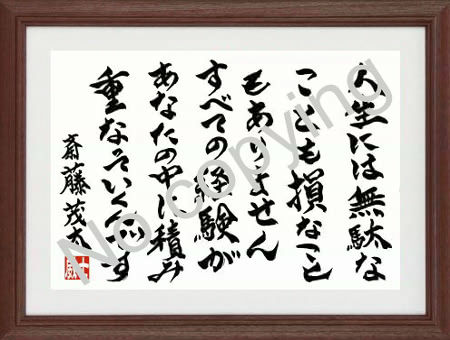 人生には無駄な
ことも損なこと
もありません
すべての経験が
あなたの中に積み
重なっていくんです
斎藤茂太
No copying